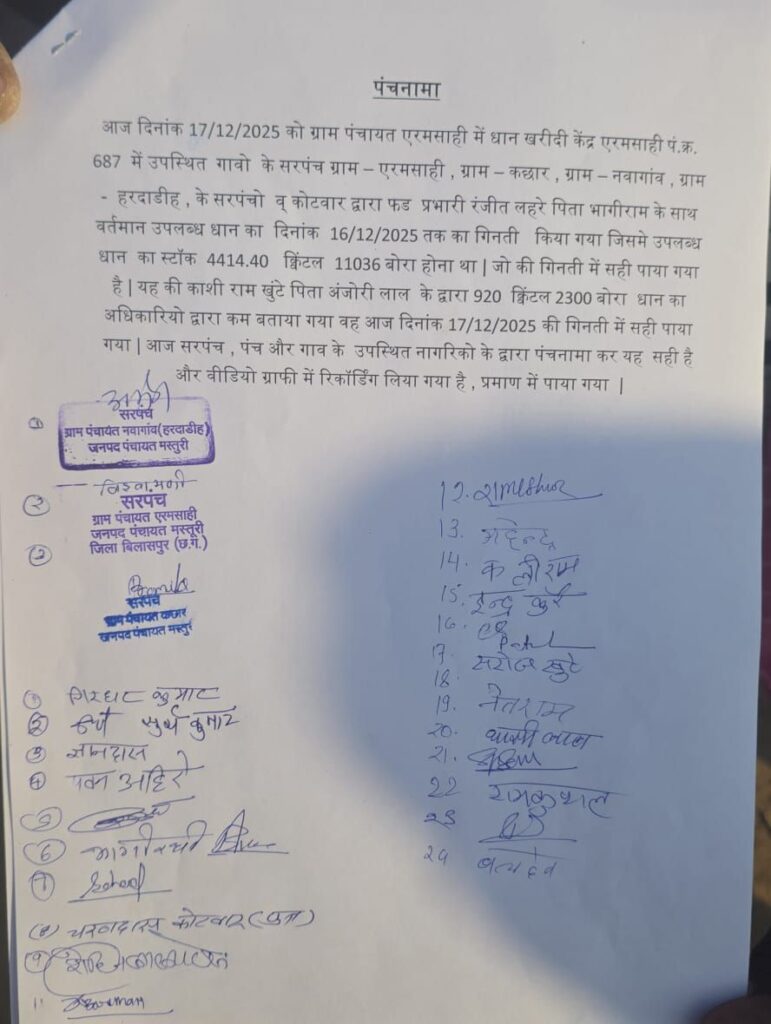 पंचनामा
आज दिनांक 17/12/2025 को ग्राम पंचायत एरमसाही में धान खरीदी केंद्र एरमसाही पं.क्र.
687 में उपस्थित गावो के सरपंच ग्राम – एरमसाही , ग्राम – कछार , ग्राम – नवागांव , ग्राम
- हरदाडीह , के सरपंचो व् कोटवार द्वारा फड प्रभारी रंजीत लहरे पिता भागीराम के साथ
वर्तमान उपलब्ध धान का दिनांक 16/12/2025 तक का गिनती किया गया जिसमे उपलब्ध
धान का स्टॉक 4414.40 क्विंटल 11036 बोरा होना था | जो की गिनती में सही पाया गया
है | यह की काशी राम खुंटे पिता अंजोरी लाल के द्वारा 920 क्विंटल 2300 बोरा धान का
अधिकारियो द्वारा कम बताया गया वह आज दिनांक 17/12/2025 की गिनती में सही पाया
गया | आज सरपंच , पंच और गाव के उपस्थित नागरिको के द्वारा पंचनामा कर यह सही है
और वीडियो ग्राफी में रिकॉर्डिंग लिया गया है , प्रमाण में पाया गया |
①
सरपंच
ग्राम पंचायत नवागांव(हरदाडीह)
जनपद पंचायत मस्तुरी
②
सरपंच
ग्राम पंचायत एरमसाही
जनपद पंचायत मस्तूरी
जिला बिलासपुर (छ.ग.)
③
सरपंच
ग्राम पंचायत कछार
जनपद पंचायत मस्तुरी
①
② सुर्य कुमार
③ ज्ञानदास
④
⑤
⑥ भागीरथी
⑦
(8) चरनदास कोटवार
⑨
11
12. Rameshwar
13. महेन्द्र
14.
15. इन्द्र कुर्रे
16.
17. Patel
18. सरोज खुंटे
19. नेतराम
20.
21.
22 रामकुशल
23
24